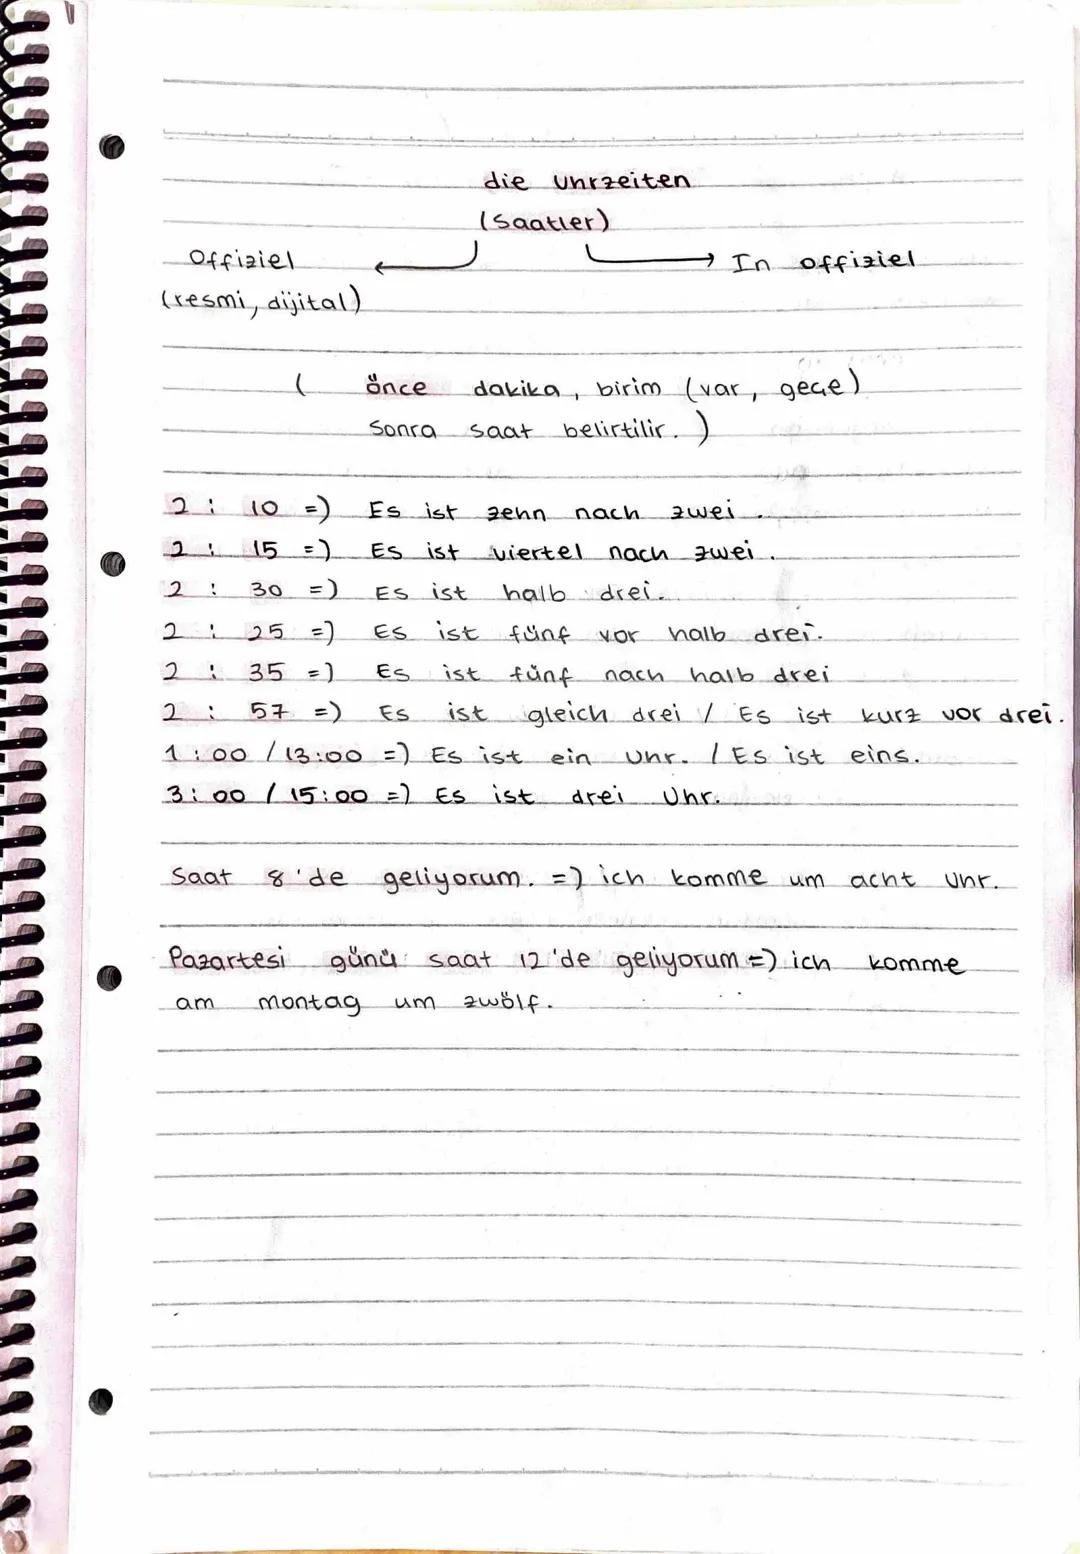 die Uhrzeiten
(Saatler)
Offiziel In offiziel
(resmi, dijital)
( önce dakika, birim (var, geçe)
sonra saat belirtilir. )
2 : 10 =) Es ist zehn nach zwei.
2 : 15 =) Es ist viertel nach zwei.
2 : 30 =) Es ist halb drei.
2 : 25 =) Es ist fünf vor halb drei.
2 : 35 =) Es ist fünf nach halb drei
2 : 57 =) Es ist gleich drei / Es ist kurz vor drei.
1 : 00 / 13:00 =) Es ist ein Uhr. / Es ist eins.
3 : 00 / 15:00 =) Es ist drei Uhr.
Saat 8'de geliyorum. =) ich komme um acht Uhr.
Pazartesi günü saat 12'de geliyorum =) ich komme
am montag um zwölf.